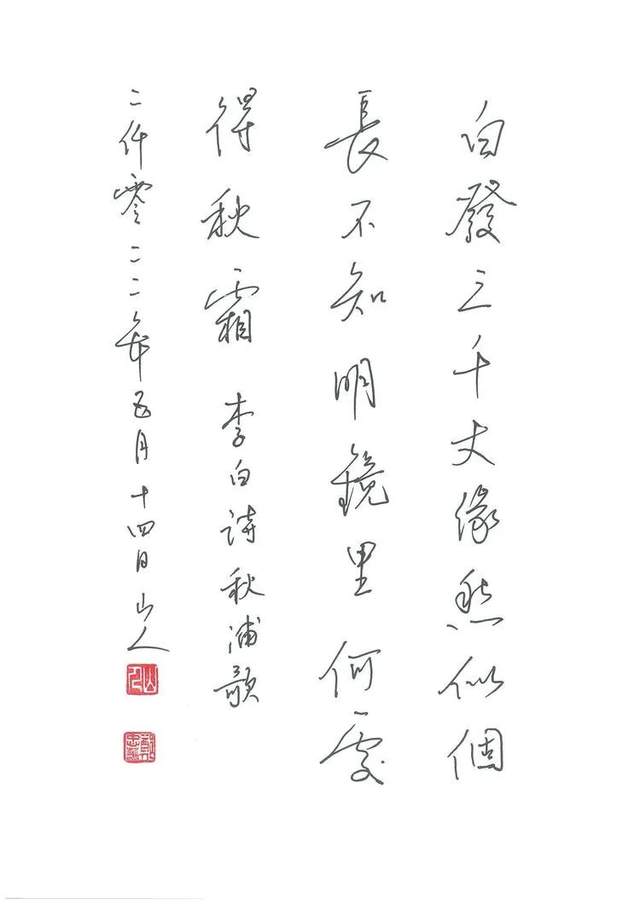 白發三千丈緣愁似個
長不知明鏡里何處
得秋霜 李白詩秋浦歌
二仟零二二年五月十四日山人
山人